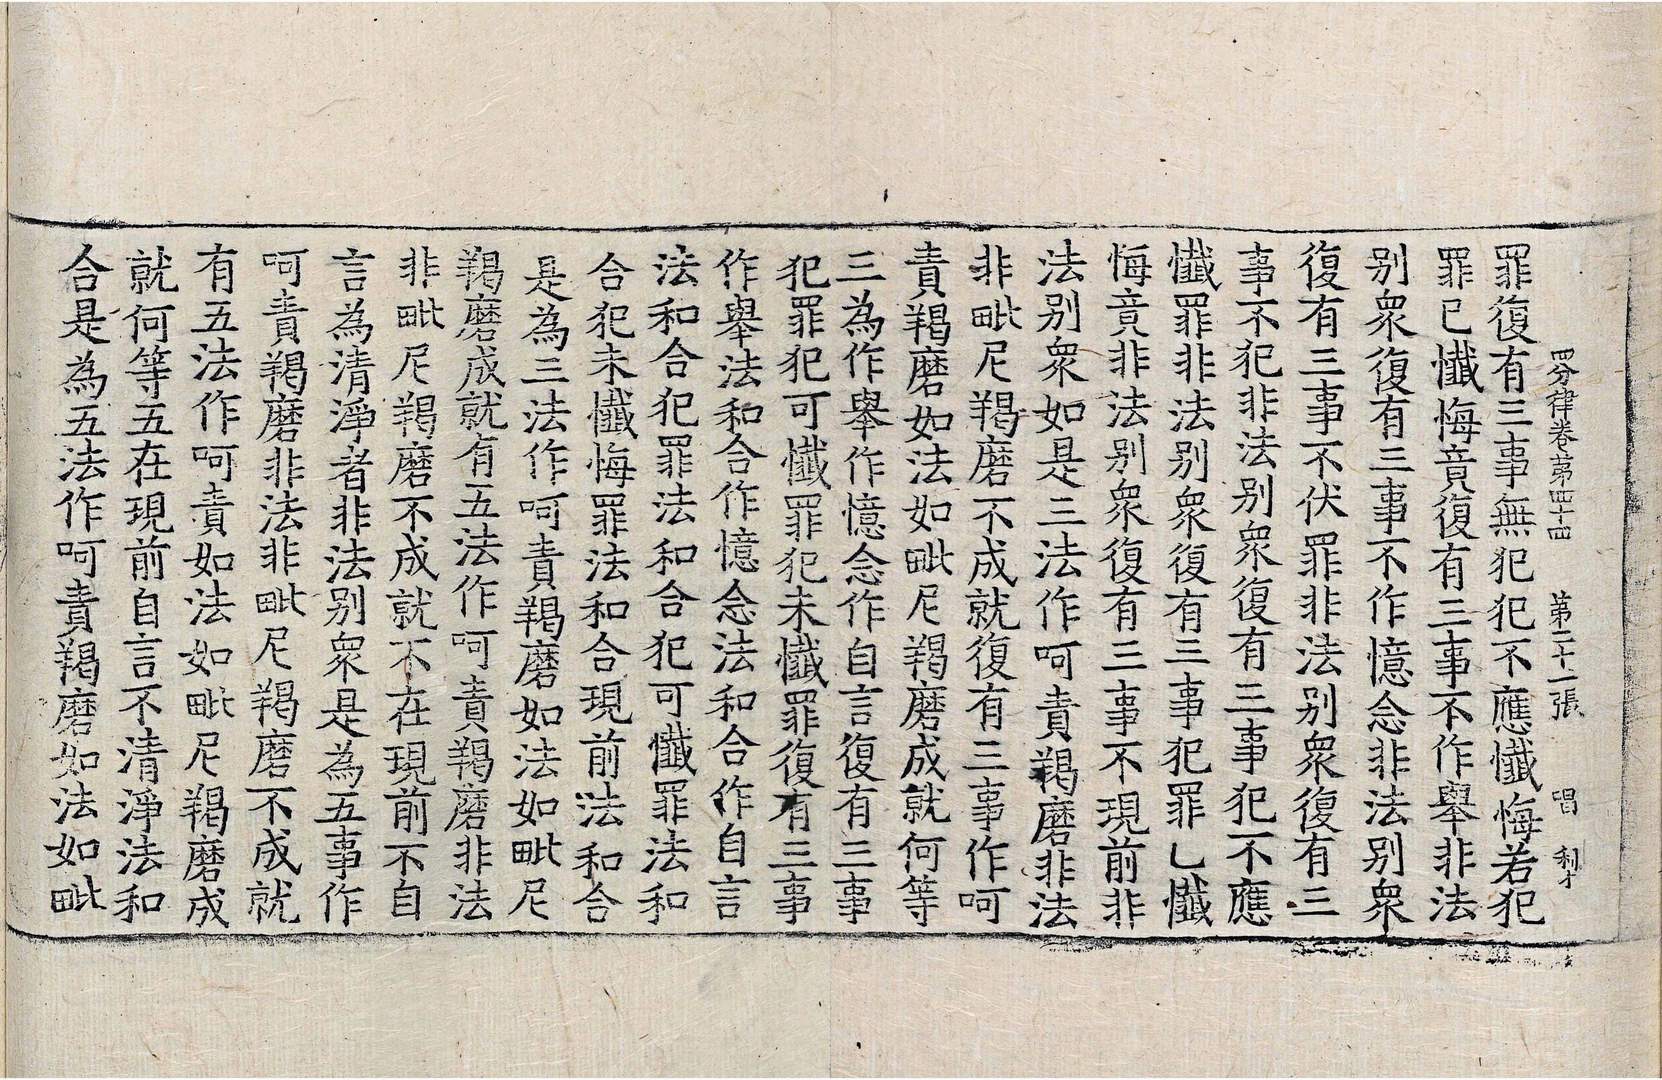 四分律卷第四十四 第二十一張 唱 利才
罪復有三事無犯犯不應懺悔若犯
罪已懺悔竟復有三事不作舉非法
別衆復有三事不作憶念非法別衆
復有三事不伏罪非法別衆復有三
事不犯非法別衆復有三事犯不應
懺罪非法別衆復有三事犯罪已懺
悔竟非法別衆復有三事不現前非
法別衆如是三法作呵責羯磨非法
非毗尼羯磨不成就復有三事作呵
責羯磨如法如毗尼羯磨成就何等
三為作舉作憶念作自言復有三事
犯罪犯可懺罪犯未懺罪復有三事
作舉法和合作憶念法和合作自言
法和合犯罪法和合犯可懺罪法和
合犯未懺悔罪法和合現前法和合
是為三法作呵責羯磨如法如毗尼
羯磨成就有五法作呵責羯磨非法
非毗尼羯磨不成就不在現前不自
言為清淨者非法別衆是為五事作
呵責羯磨非法非毗尼羯磨不成就
有五法作呵責如法如毗尼羯磨成
就何等五在現前自言不清淨法和
合是為五法作呵責羯磨如法如毗